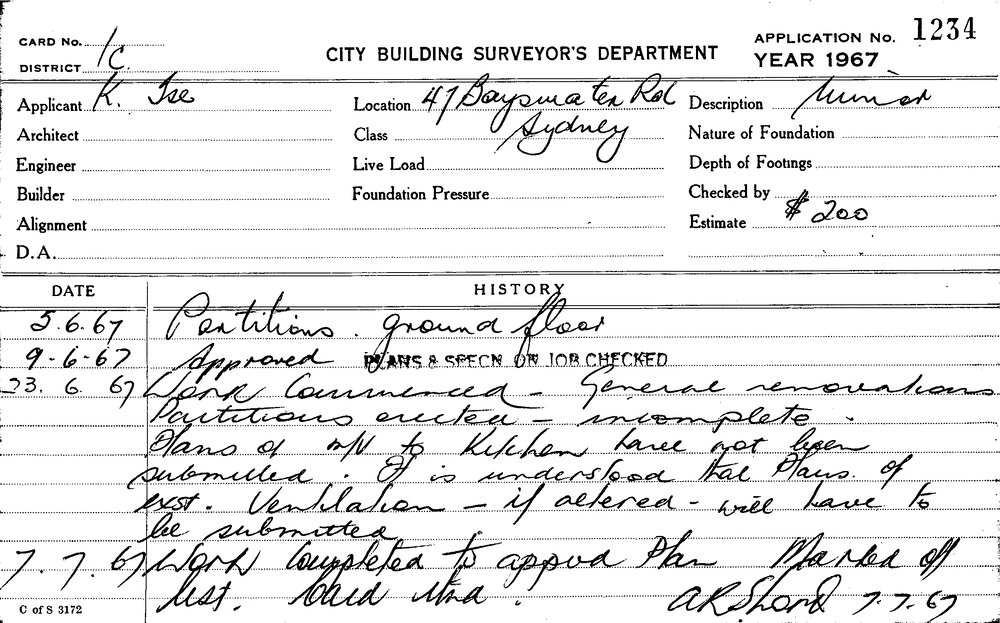 CARD No. 1c.
DISTRICT
CITY BUILDING SURVEYOR'S DEPARTMENT
APPLICATION No. 1234
YEAR 1967
Applicant K. Tse
Location 47 Bayswater Rd
Description Minor
Architect
Class Sydney
Nature of Foundation
Engineer
Live Load
Depth of Footings
Builder
Foundation Pressure
Checked by
Alignment
Estimate $ 200
D.A.
DATE HISTORY
5.6.67 Partitions. ground floor
9-6-67 Approved PLANS & SPECN. ON JOB CHECKED
23. 6. 67 Work Commenced - General renovations
Partitions erected - incomplete.
Plans of m/v to Kitchen have not been
submitted. It is understood that Plans of
exst. Ventilation - if altered - will have to
be submitted
7. 7. 67 Work Completed to approd Plan Marked off
list. Card
7.7.67
C of S 3172